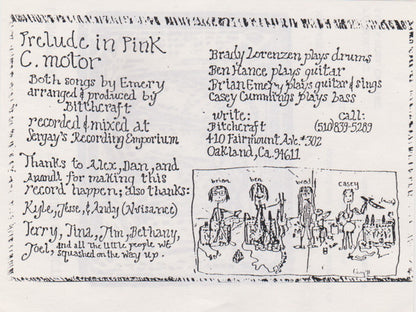 Prelude in Pink
C. motor
Both songs by Emery
arranged & produced by
Bitchcraft
recorded & mixed at
Sergay's Recording Emporium
Thanks to Alex, Dan, and
for making this
record happen; also thanks:
Kyle, Jesse, & Andy (Nuisance)
Terry, Tina, Tim, Bethany,
Joel, and all the little people we
squashed on the way up.
Brady Lorenzen plays drums
Ben Hance plays guitar
Brian Emery plays guitar & sings
Casey Cummings plays bass
write: call:
Bitchcraft (510)839-5289
410 Fairmount Ave. #302
Oakland, Ca. 94611
brian ben brad casey